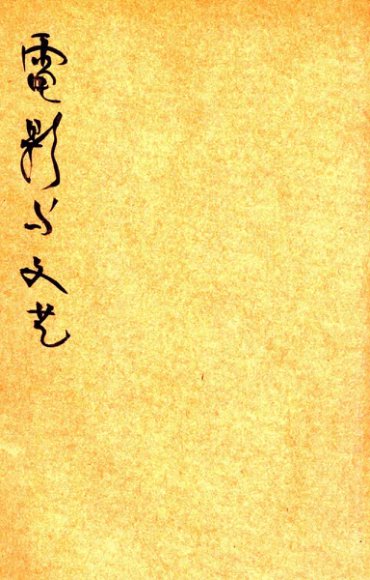 電影与文艺